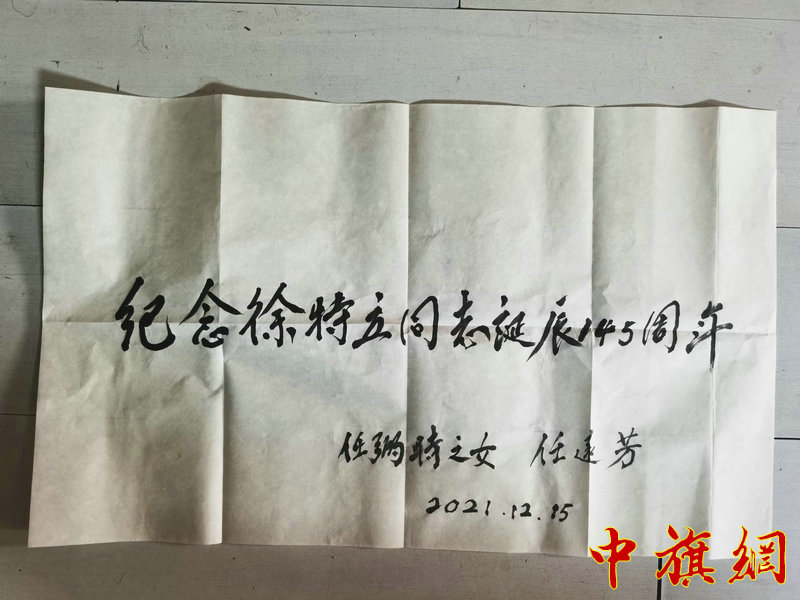 纪念徐特立同志诞辰145周年
任弼时之女 任远芳
2021.12.15
中旗網